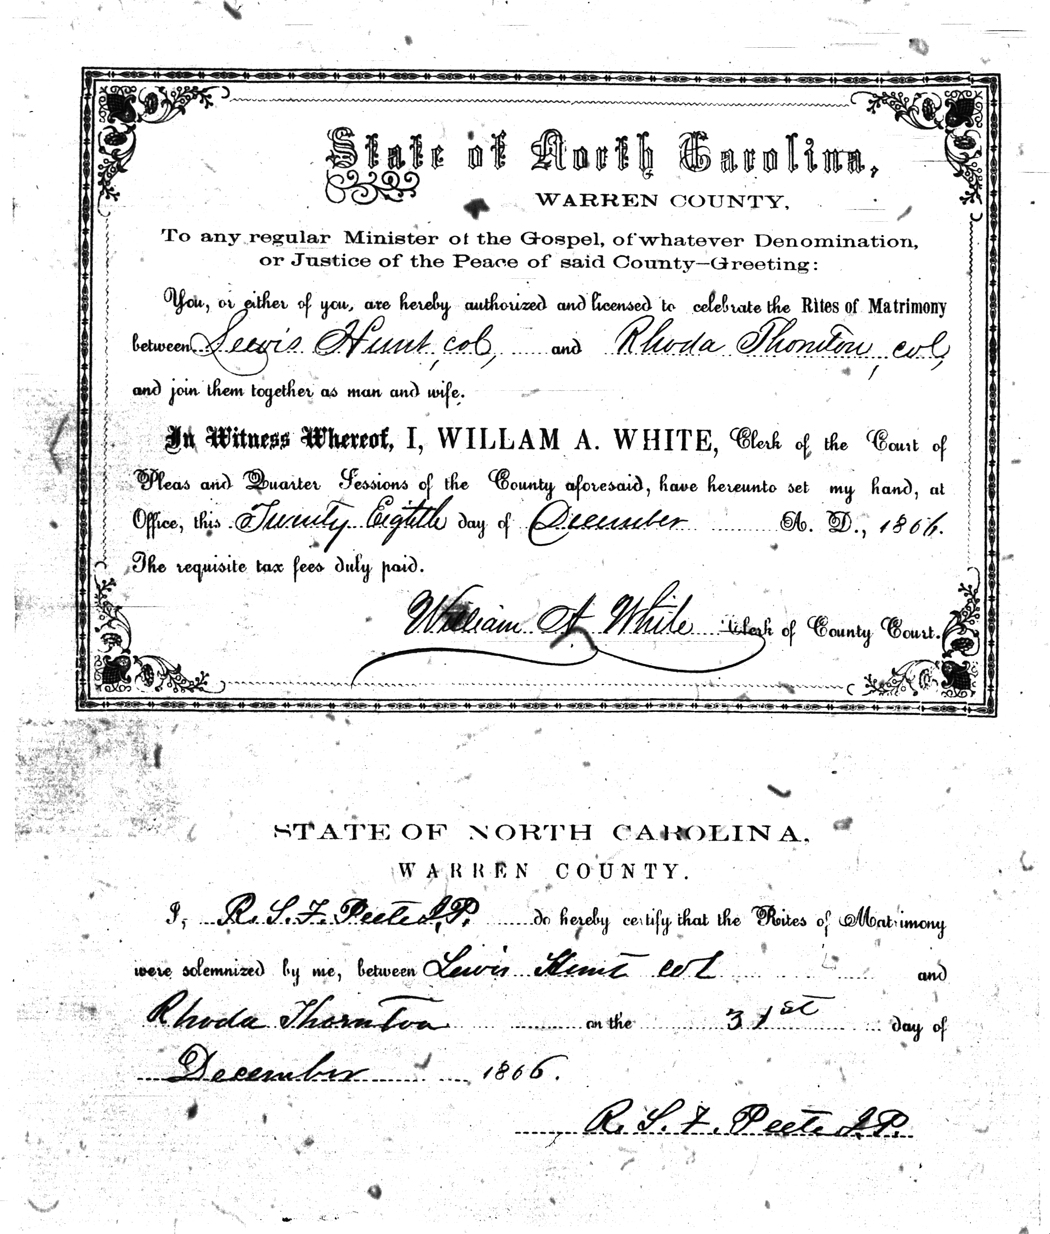 State of North Carolina,
WARREN COUNTY,
To any regular Minister of the Gospel, of whatever Denomination,
or Justice of the Peace of said County—Greeting:
You, or either of you, are hereby authorized and licensed to celebrate the Rites of Matrimony
between Lewis Hunt, col, and Rhoda Thornton, col,
and join them together as man and wife.
In Witness Whereof, I, WILLAM A. WHITE, Clerk of the Court of
Pleas and Quarter Sessions of the County aforesaid, have hereunto set my hand, at
Office, this Twenty Eighth day of December A. D., 1866.
The requisite tax fees duly paid.
William A White Clerk of County Court.
STATE OF NORTH CAROLINA,
WARREN COUNTY.
I, R. S. F. Peete J.P. do hereby certify that the Rites of Matrimony
were solemnized by me, between Lewis Hunt col and
Rhoda Thornton on the 31st day of
December 1866.
R. S. F. Peete J.P.